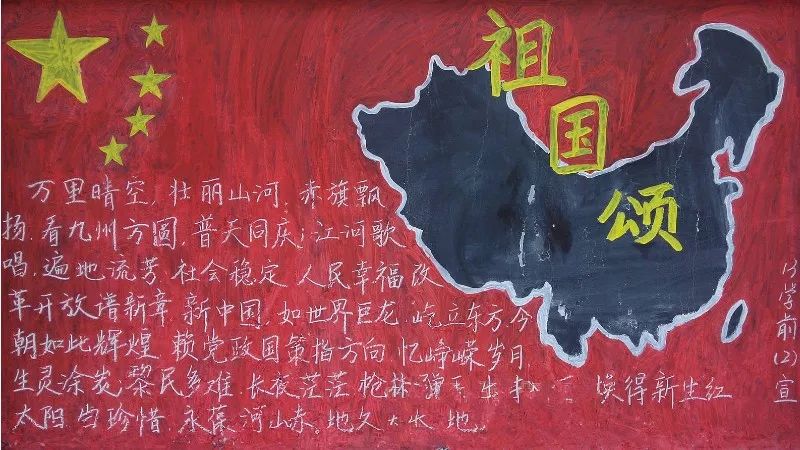 祖国颂
万里晴空，壮丽山河，赤旗飘
扬．看九州方圆，普天同庆；江河歌
唱，遍地流芳．社会稳定 人民幸福 改
革开放谱新章．新中国，如世界巨龙．屹立东方．今
朝如此辉煌．赖党政国策指方向．忆峥嵘岁月．
生灵涂炭；黎民多难．长夜茫茫．枪林弹 生 换得新生红
太阳．当珍惜．永葆河山赤。地久 地
学前(2)宣